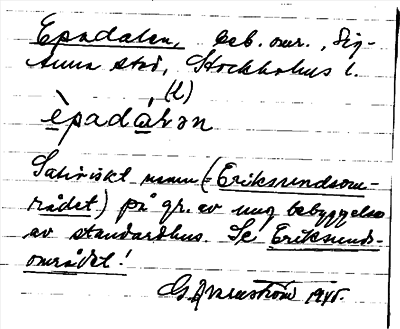 Epadalen, beb. omr., Sig-
tuna stad, Stockholms l.
(l)
èpadát∂n
Satiriskt namn (= Eriksundsom-
rådet) på gr. av ung bebyggelse
av standardhus. Se Eriksunds-
området!
G. 1945.